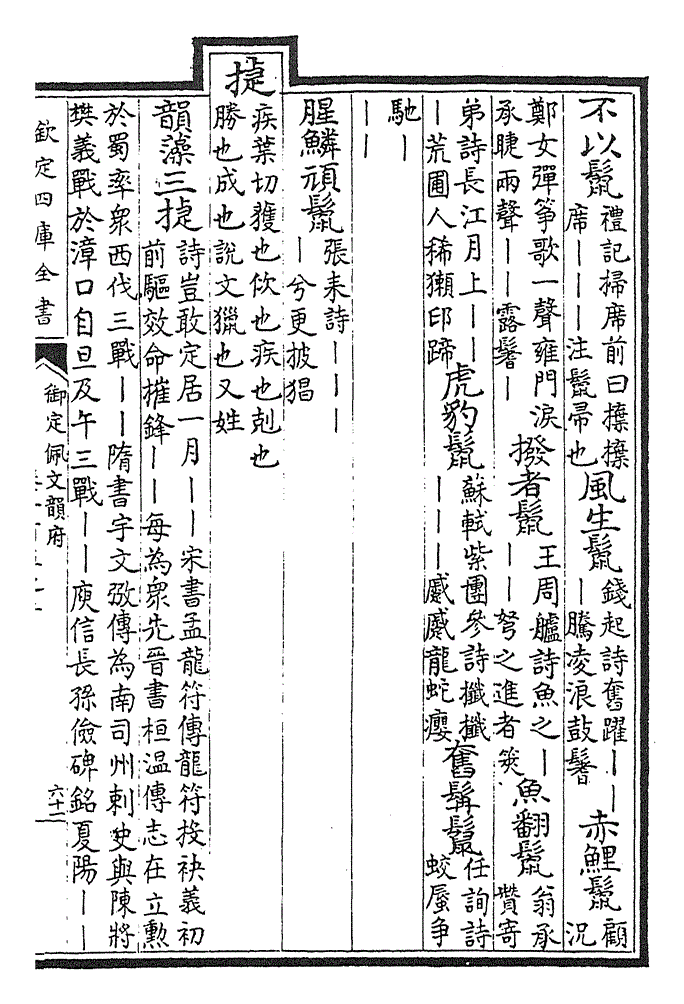 不以鬛
禮記掃席前曰
席｜｜｜｜注鬛帚也
風生鬛
錢起詩奮躍｜｜
｜騰凌浪鼓鬐
赤鯉鬛
顧
況
鄭女彈箏歌一聲雍門淚
承睫兩聲｜｜露鬐｜
撥者鬛
王周艫詩魚之｜
｜｜弩之進者筴
魚翻鬛
翁承
贊寄
弟詩長江月上｜｜｜
｜荒圃人稀獺印蹄
虎豹鬛
蘇軾紫團參詩纖纖
｜｜｜慼慼龍蛇癭
奮髯鬛
任詢詩
蛟蜃争
馳｜
｜｜
腥鱗頑鬛
張耒詩｜｜｜
｜兮更披猖
捷
疾葉切獲也佽也疾也剋也
勝也成也說文獵也又姓
韻藻三捷
詩豈敢定居一月｜｜宋書孟龍符傳龍符投袂義初
前驅效命摧鋒｜｜每為衆先晉書桓温傳志在立勲
於蜀率衆西伐三戰｜｜隋書宇文弢傳為南司州刺史與陳將
樊義戰於漳口自旦及午三戰｜｜庾信長孫儉碑銘夏陽｜｜
欽定四庫全書
御定佩文韻府
六十二